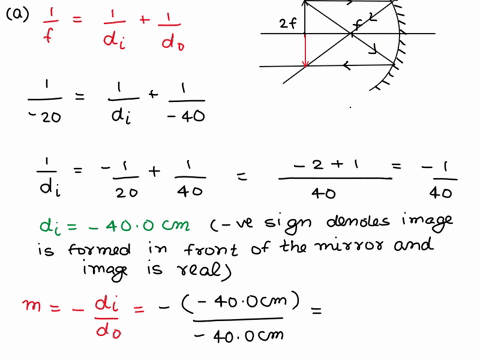 (a) 1/f = 1/di + 1/do
2f
f
1/-20 = 1/di + 1/-40
1/di = -1/20 + 1/40 = -2+1/40 = -1/40
di = -40.0 cm (-ve sign denotes image
is formed in front of the mirror and
image is real)
m = - di/do = - (-40.0cm)/-40.0cm =